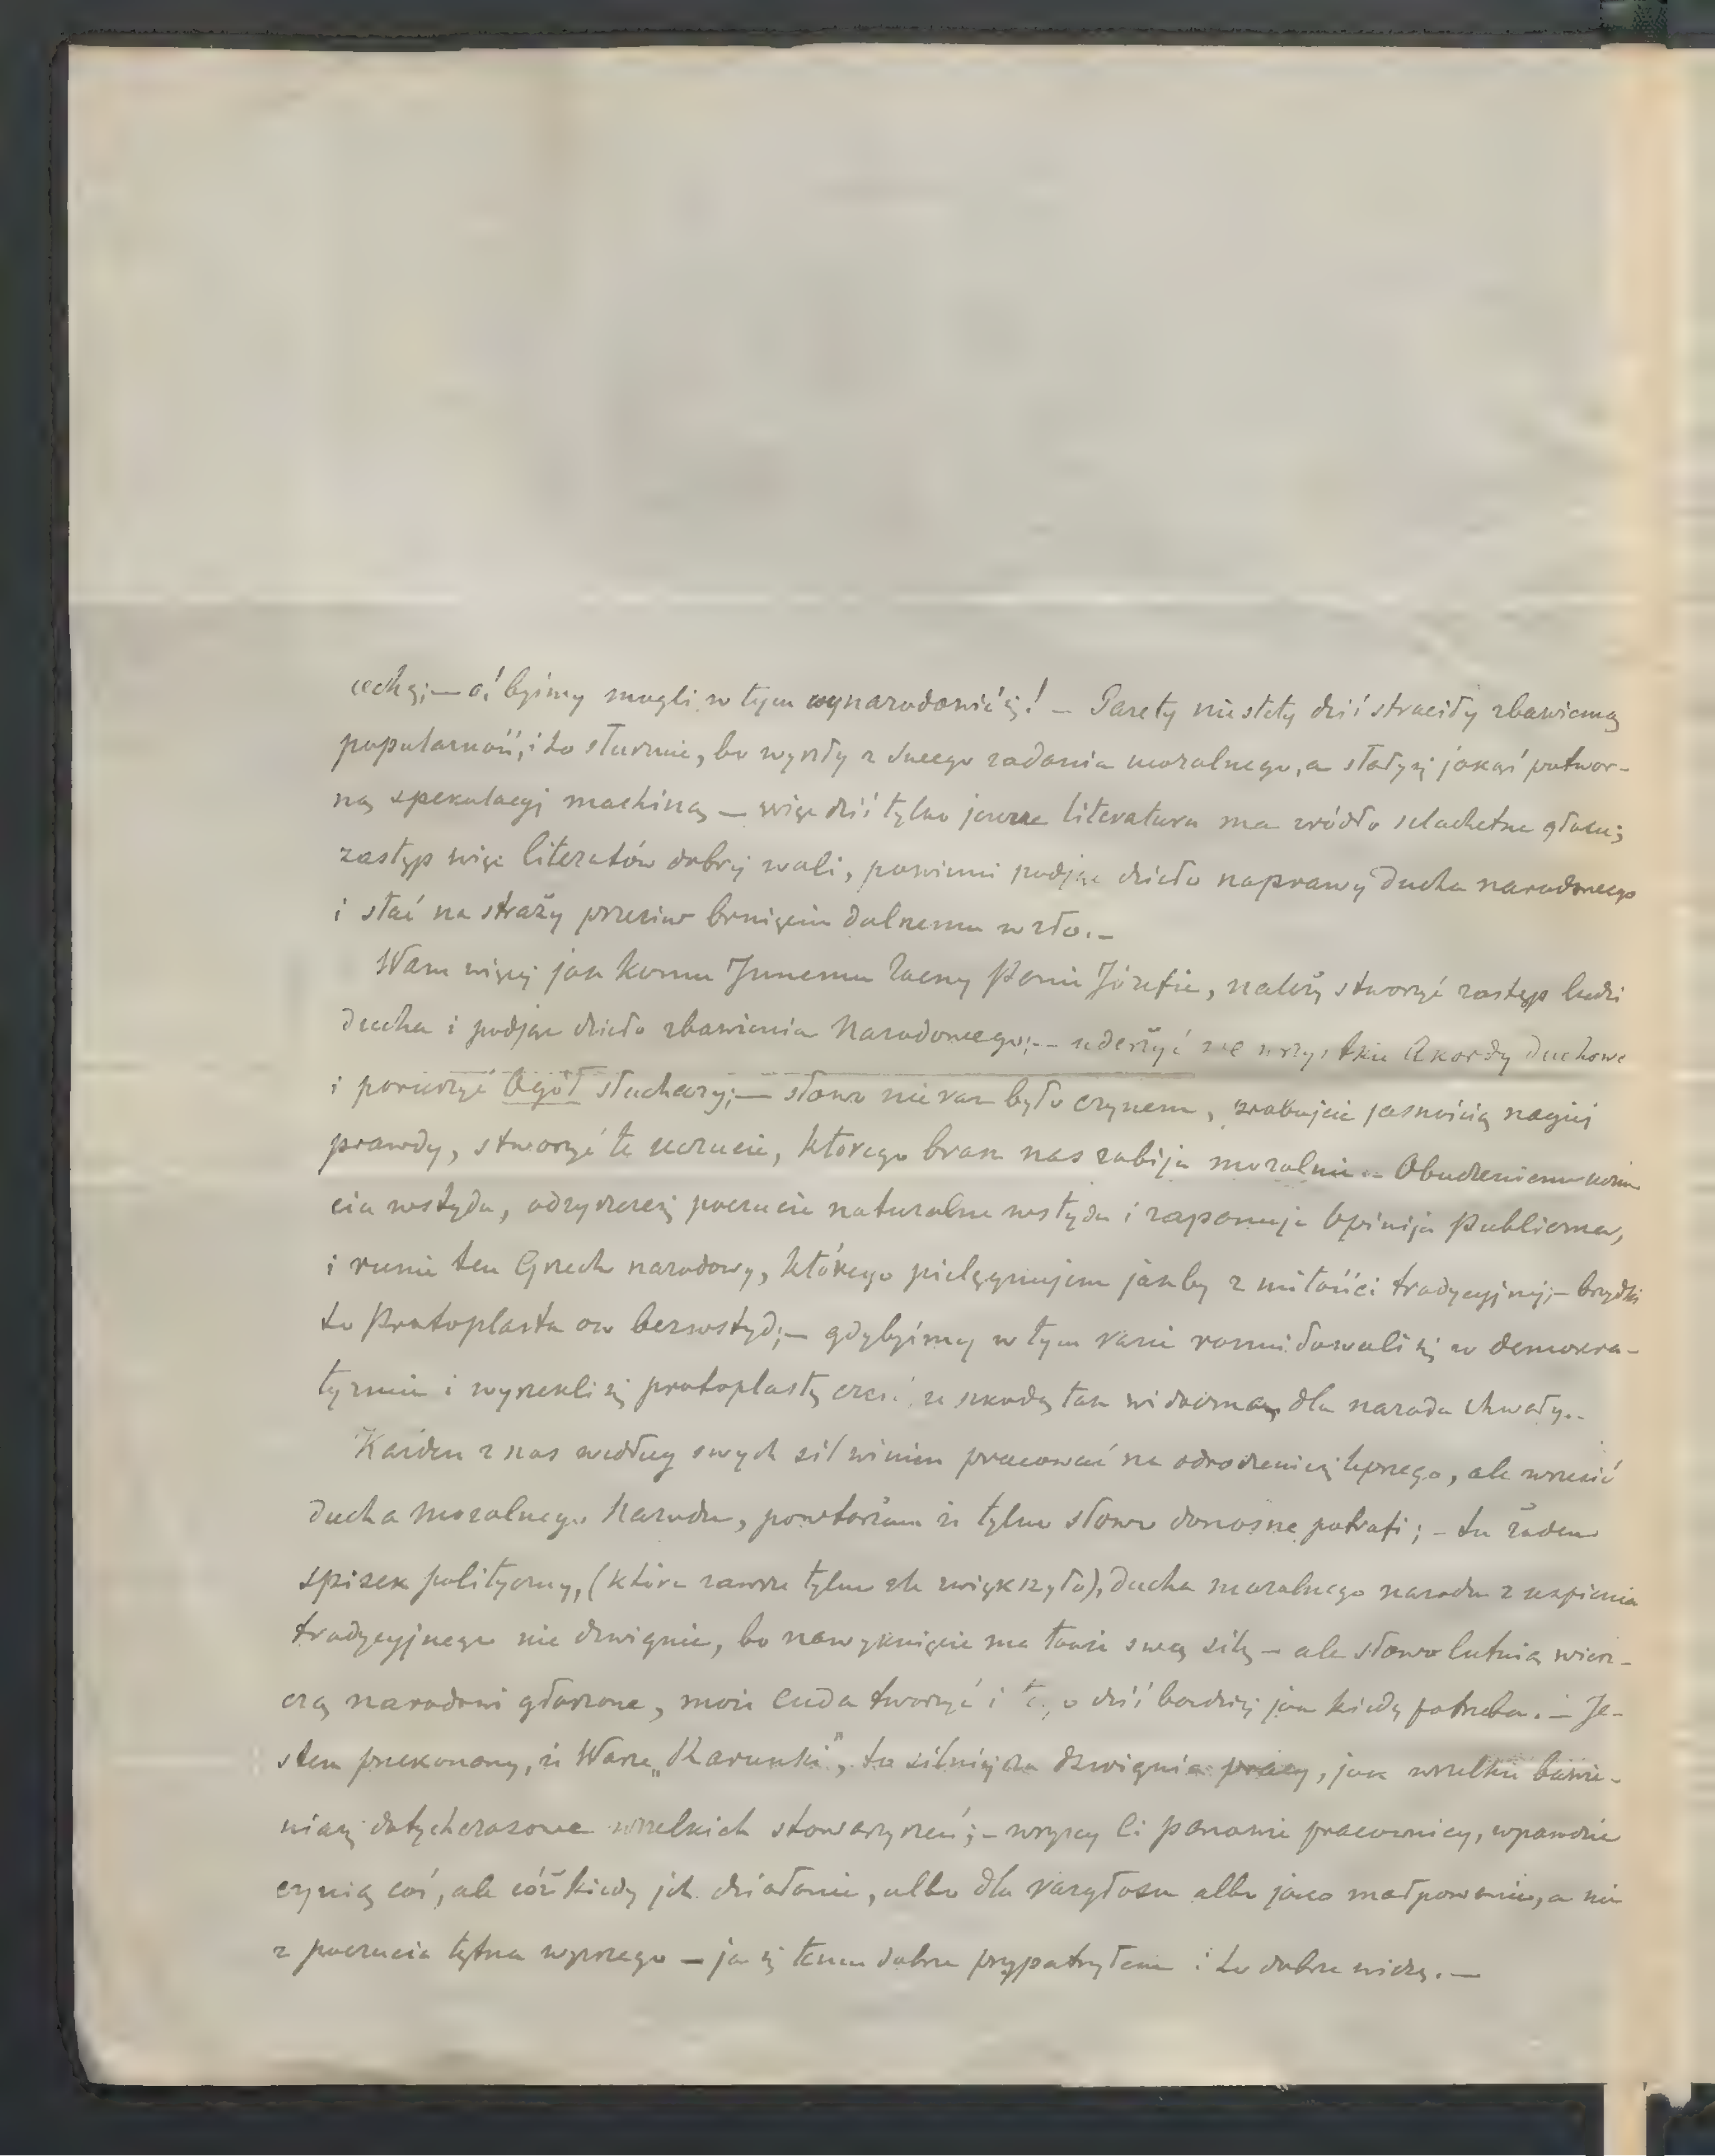 cechą;— o! byśmy mogli w tym wynarodowić się! — Gazety niestety dziś straciły zbawienną
popularność, i to słusznie, bo wyszły z swego zadania moralnego, a stały się jakąś potwor-
ną spekulacyj machiną — więc dziś tylko jeszcze literatura ma źródło szlachetne głosu;
zastęp więc literatów dobrej woli, powinni podjąć dzieło naprawy Ducha narodowego
i stać na straży przeciw brnięciu dalszemu w zło.—
Wam więcej jak komu Innemu Zacny Panie Józefie, należy stworzyć zastęp ludzi
Ducha i podjąć dzieło zbawienia Narodowego;— uderzyć we wszystkie Akordy Duchowe
i poruszyć Ogół słuchaczy;— słowo nie raz było czynem, jasnością nagiej
prawdy, stworzyć te uczucie, którego brak nas zabija moralnie.— Obudzeniem uczu-
cia wstydu, odzyszczę poczucie naturalne wstydu i zapanuje Opinija Publiczna,
i runie ten Grzech narodowy, którego pielęgnujem jakby z miłości tradycyjnej;— brzydki
to Protoplasta ów bezwstyd;— gdybyśmy w tym razie rozmiłowali się w demokra-
tyzmie i wyrzekli się protoplasty cześć ze szkodą tak widoczną dla narodu chwały.—
Każden z nas według swych sił winien pracować na odrodzenie się lepszego, ale wznieść
Ducha moralnego Narodu, powtarzam iż tylko słowo donośne potrafi; — tu żaden
spisek polityczny, (które zawsze tylko złe zwiększyło), Ducha moralnego narodu z uśpienia
tradycyjnego nie dzwignie, bo nawyknięcie ma także swą siłę — ale słowo lutnią wiesz-
czą narodowi głoszone, może cuda tworzyć i tego dziś bardziej jak kiedy potrzeba. — Je-
stem przekonany, iż Wasze „Rachunki", to silniejsza dzwignia pracy, jak wszelkie bawie-
nia się dotychczasowe wszelkich stowarzyszeń; — wszyscy Ci panowie pracownicy, wprawdzie
czynią coś, ale cóż kiedy ich działanie, albo dla rozgłosu albo jako małpowanie, a nie
z poczucia tętna wyższego — ja się temu dobrze przypatrzyłem i to dobrze widzę.—